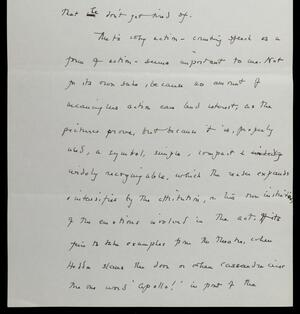 that I don't get tired of.
That's why action - counting speech as a
form of action - seems important to me. Not
for its own sake, because no amount of
meaningless action can lend interest, as the
pictures prove, but because it is, properly
used, a symbol, simple, compact &
widely recognizable, which the reader expands
& intensifies by the attribution, on his own
of the emotions involved in the act. It's
fair to take examples from the theatre, when
Hedda slams the door or when Cassandra cries
the one word 'Apollo!' in front of the